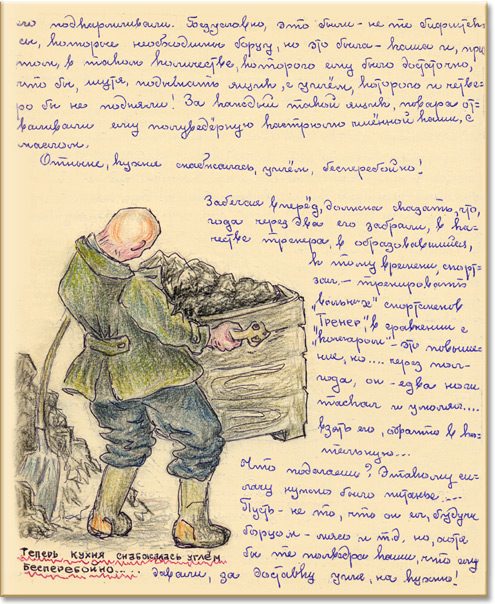 его подкармливали. Безусловно, это были - не те бифштек-
сы, которые необходимы борцу, но это была - каша и, при-
том, в таком количестве, которого ему было достаточно,
что бы, шутя, поднимать ящик, с углём, которого и четве-
ро бы не подняли! За каждый такой ящик, повара от-
валивали ему полуведёрную кастрюлю пшённой каши, с
маслом.
Отныне, кухня снабжалась, углём, бесперебойно!
Забегая вперёд, должна сказать, что,
года через два его забрали, в ка-
честве тренера, в образовавшийся,
к тому времени, спорт-
зал, - тренировать
"вольных" спортсменов
"Тренер", в сравнении с
"кочегаром" - это повыше-
ние, но.... через пол-
года, он - едва ноги
таскал и умолял....
взять его, обратно в ко-
тельную...
Что поделаешь? Этакому си-
лачу нужно было питанье...
Пусть - не то, что он ел, будучи
борцом - мясо и т.д. но, хотя
бы те полведра каши, что ему
давали, за доставку угля, на кухню!
Теперь кухня снабжалась углём
бесперебойно....